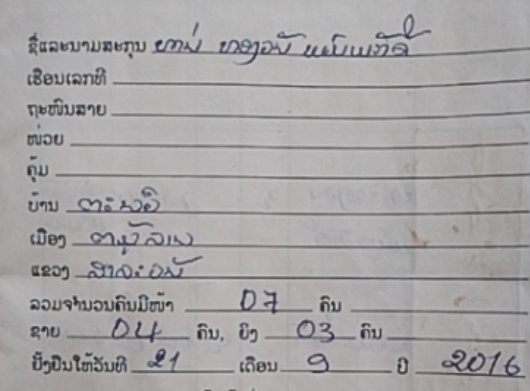 ຊື່ແລະນາມສະກຸນ ທ່ານ ທອງວັນ
ເຮືອນເລກທີ
ຖະໜົນສາຍ
ໜ່ວຍ
ຄຸ້ມ
ບ້ານ
ເມືອງ
ແຂວງ ສາລະວັນ
ລວມຈຳນວນຄົນມີໜ້າ 07 ຄົນ
ຊາຍ 04 ຄົນ, ຍິງ 03 ຄົນ
ຢັ້ງຢືນໃຫ້ວັນທີ 21 ເດືອນ 9 ປີ 2016